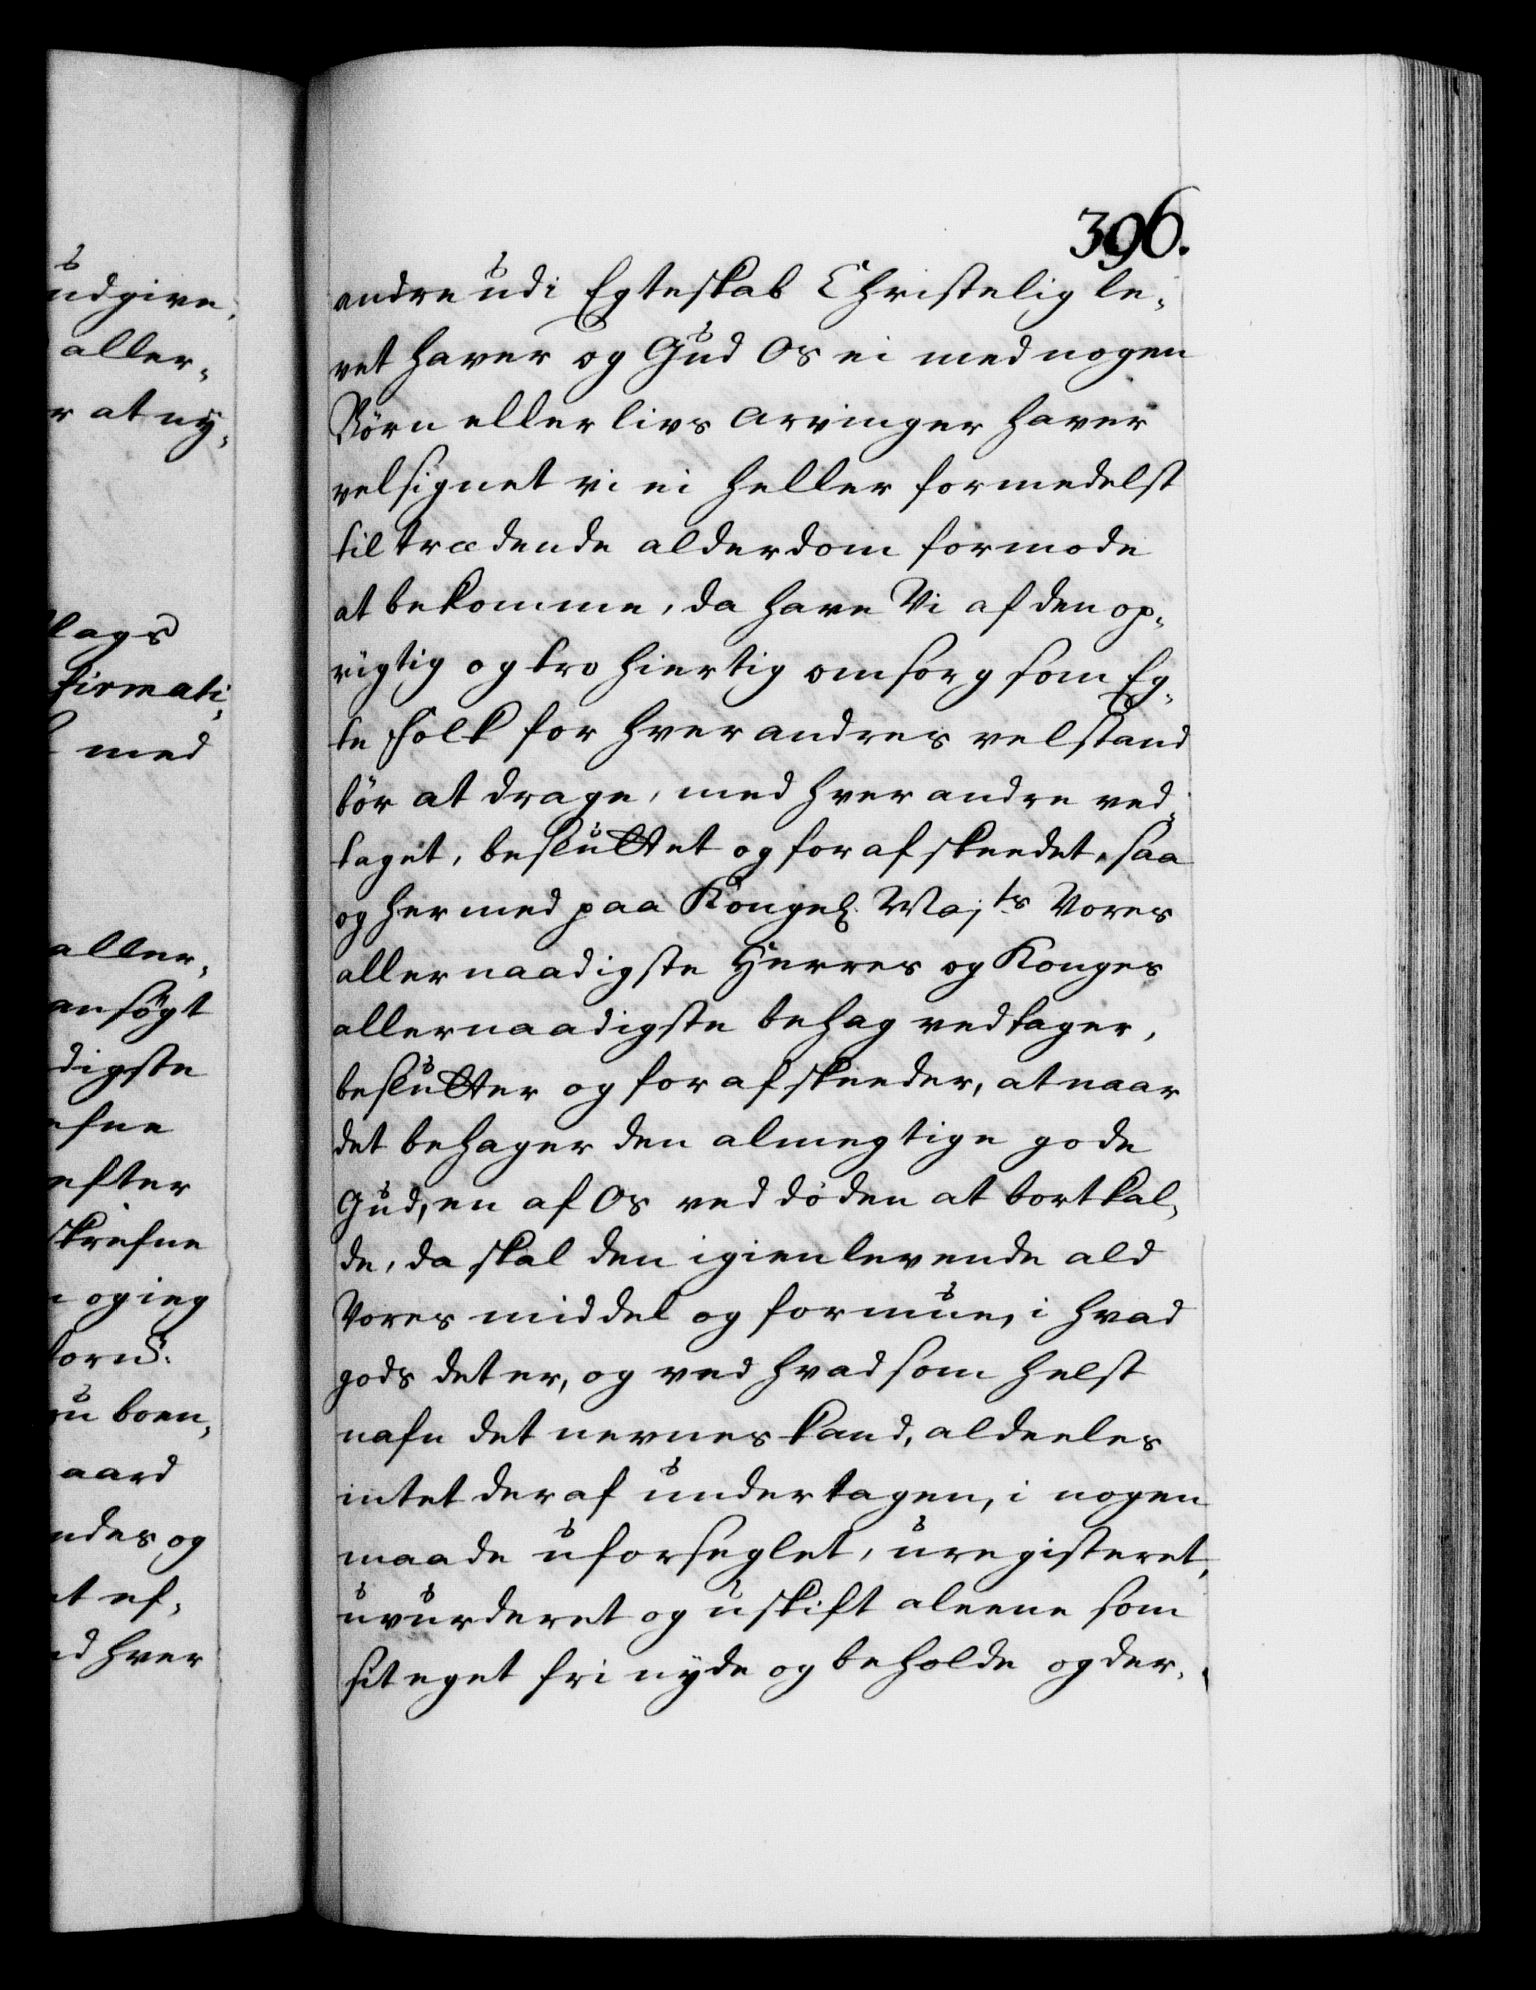 396.
andre udi Egteskab Christelig le-
vet haver og Gud Os ei med nogen
Börn eller livs arvinger haver
velsignet vi ei heller formedelst
tiltrædende alderdom formode
at bekomme, da have Vi af den op-
rigtig og tro hiertig omsorg som Eg-
te folk for hverandres velstand
bör at drage, med hver andre ved-
taget, besluttet og forafskeedet, saa
og hermed paa Kongel. Maj.ts Vores
allernaadigste Herres og Konges
allernaadigste behag vedtager,
beslutter og forafskeeder, at naar
det behager den almegtige gode
Gud, en af Os ved döden at bortkal-
de, da skal den igienlevende ald
Vores middel og formue, i hvad
gods det er, og ved hvad som helst
nafn det nevnes kand, aldeeles
intet deraf undertagen, i nogen
maade uforseglet, uregisteret,
uvurderet og uskift aleene som
sit eget fri nyde og beholde og der-
udgive,
aller-
r at ny-
lags
firmati-
med
aller-
ansögt
digste
efne
efter
skrefne
og ieg
boen-
aard
ndes og
et ef-
ed hver